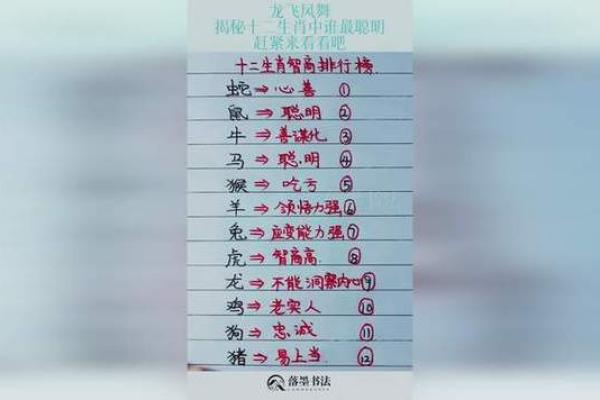 龙飞凤舞
揭秘十二生肖中谁最聪明
赶紧来看看吧
十二生肖智商排行榜
蛇⇒心善 ①
鼠⇒聪明 ②
牛⇒善谋化 ③
马⇒聪明 ④
猴⇒吃亏 ⑤
羊⇒领悟力强 ⑥
兔⇒应变能力强 ⑦
虎⇒智商高 ⑧
龙⇒不能洞察内心 ⑨
鸡⇒老实人 ⑩
狗⇒忠诚 ⑪
猪⇒易上当 ⑫
落墨书法